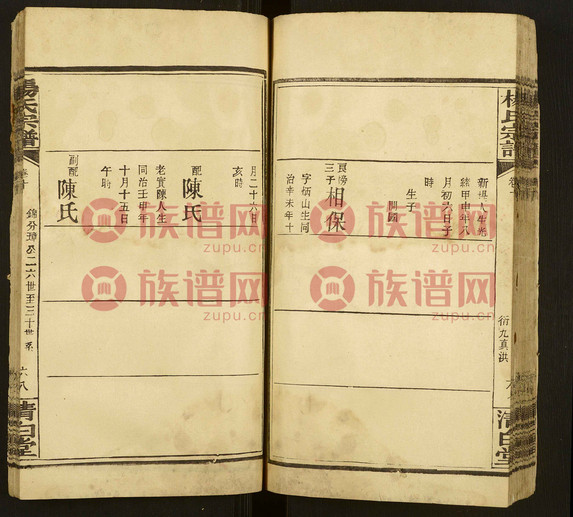 楊氏宗譜
卷十
衍九真洪
清白堂
新堤人生光
緒甲申年八
月初六日子
時
生子
開鎮
良滂
三子
相保
字炳山生河
治辛未年十
月二十六日
亥時
配
陳氏
老實陳人生
同治壬申年
十月十五日
午時
副配
陳氏
楊氏宗譜
卷十
六八
清白堂
族谱网
zupu.cn
族谱网
zupu.cn
族谱网
zupu.cn
族谱网
zupu.cn